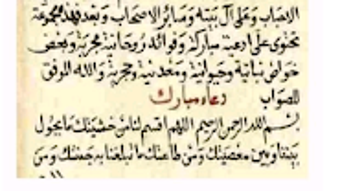 الانصاب وعلى آل بيته وسائر الاصحاب وبعد فهذه مجموعة
تحتوى على ادعية مباركة وفوائد روحانية مجربة وبعض
خواص نباتية وحيوانية ومعدنية ومجربة والله الموفق
للصواب دعاء مبارك
بسم الله الرحمن الرحيم اللهم اقسم لنا من خشيتك ما يحول
بيننا وبين معصيتك ومن طاعتك ما تبلغنا به جنتك ومن